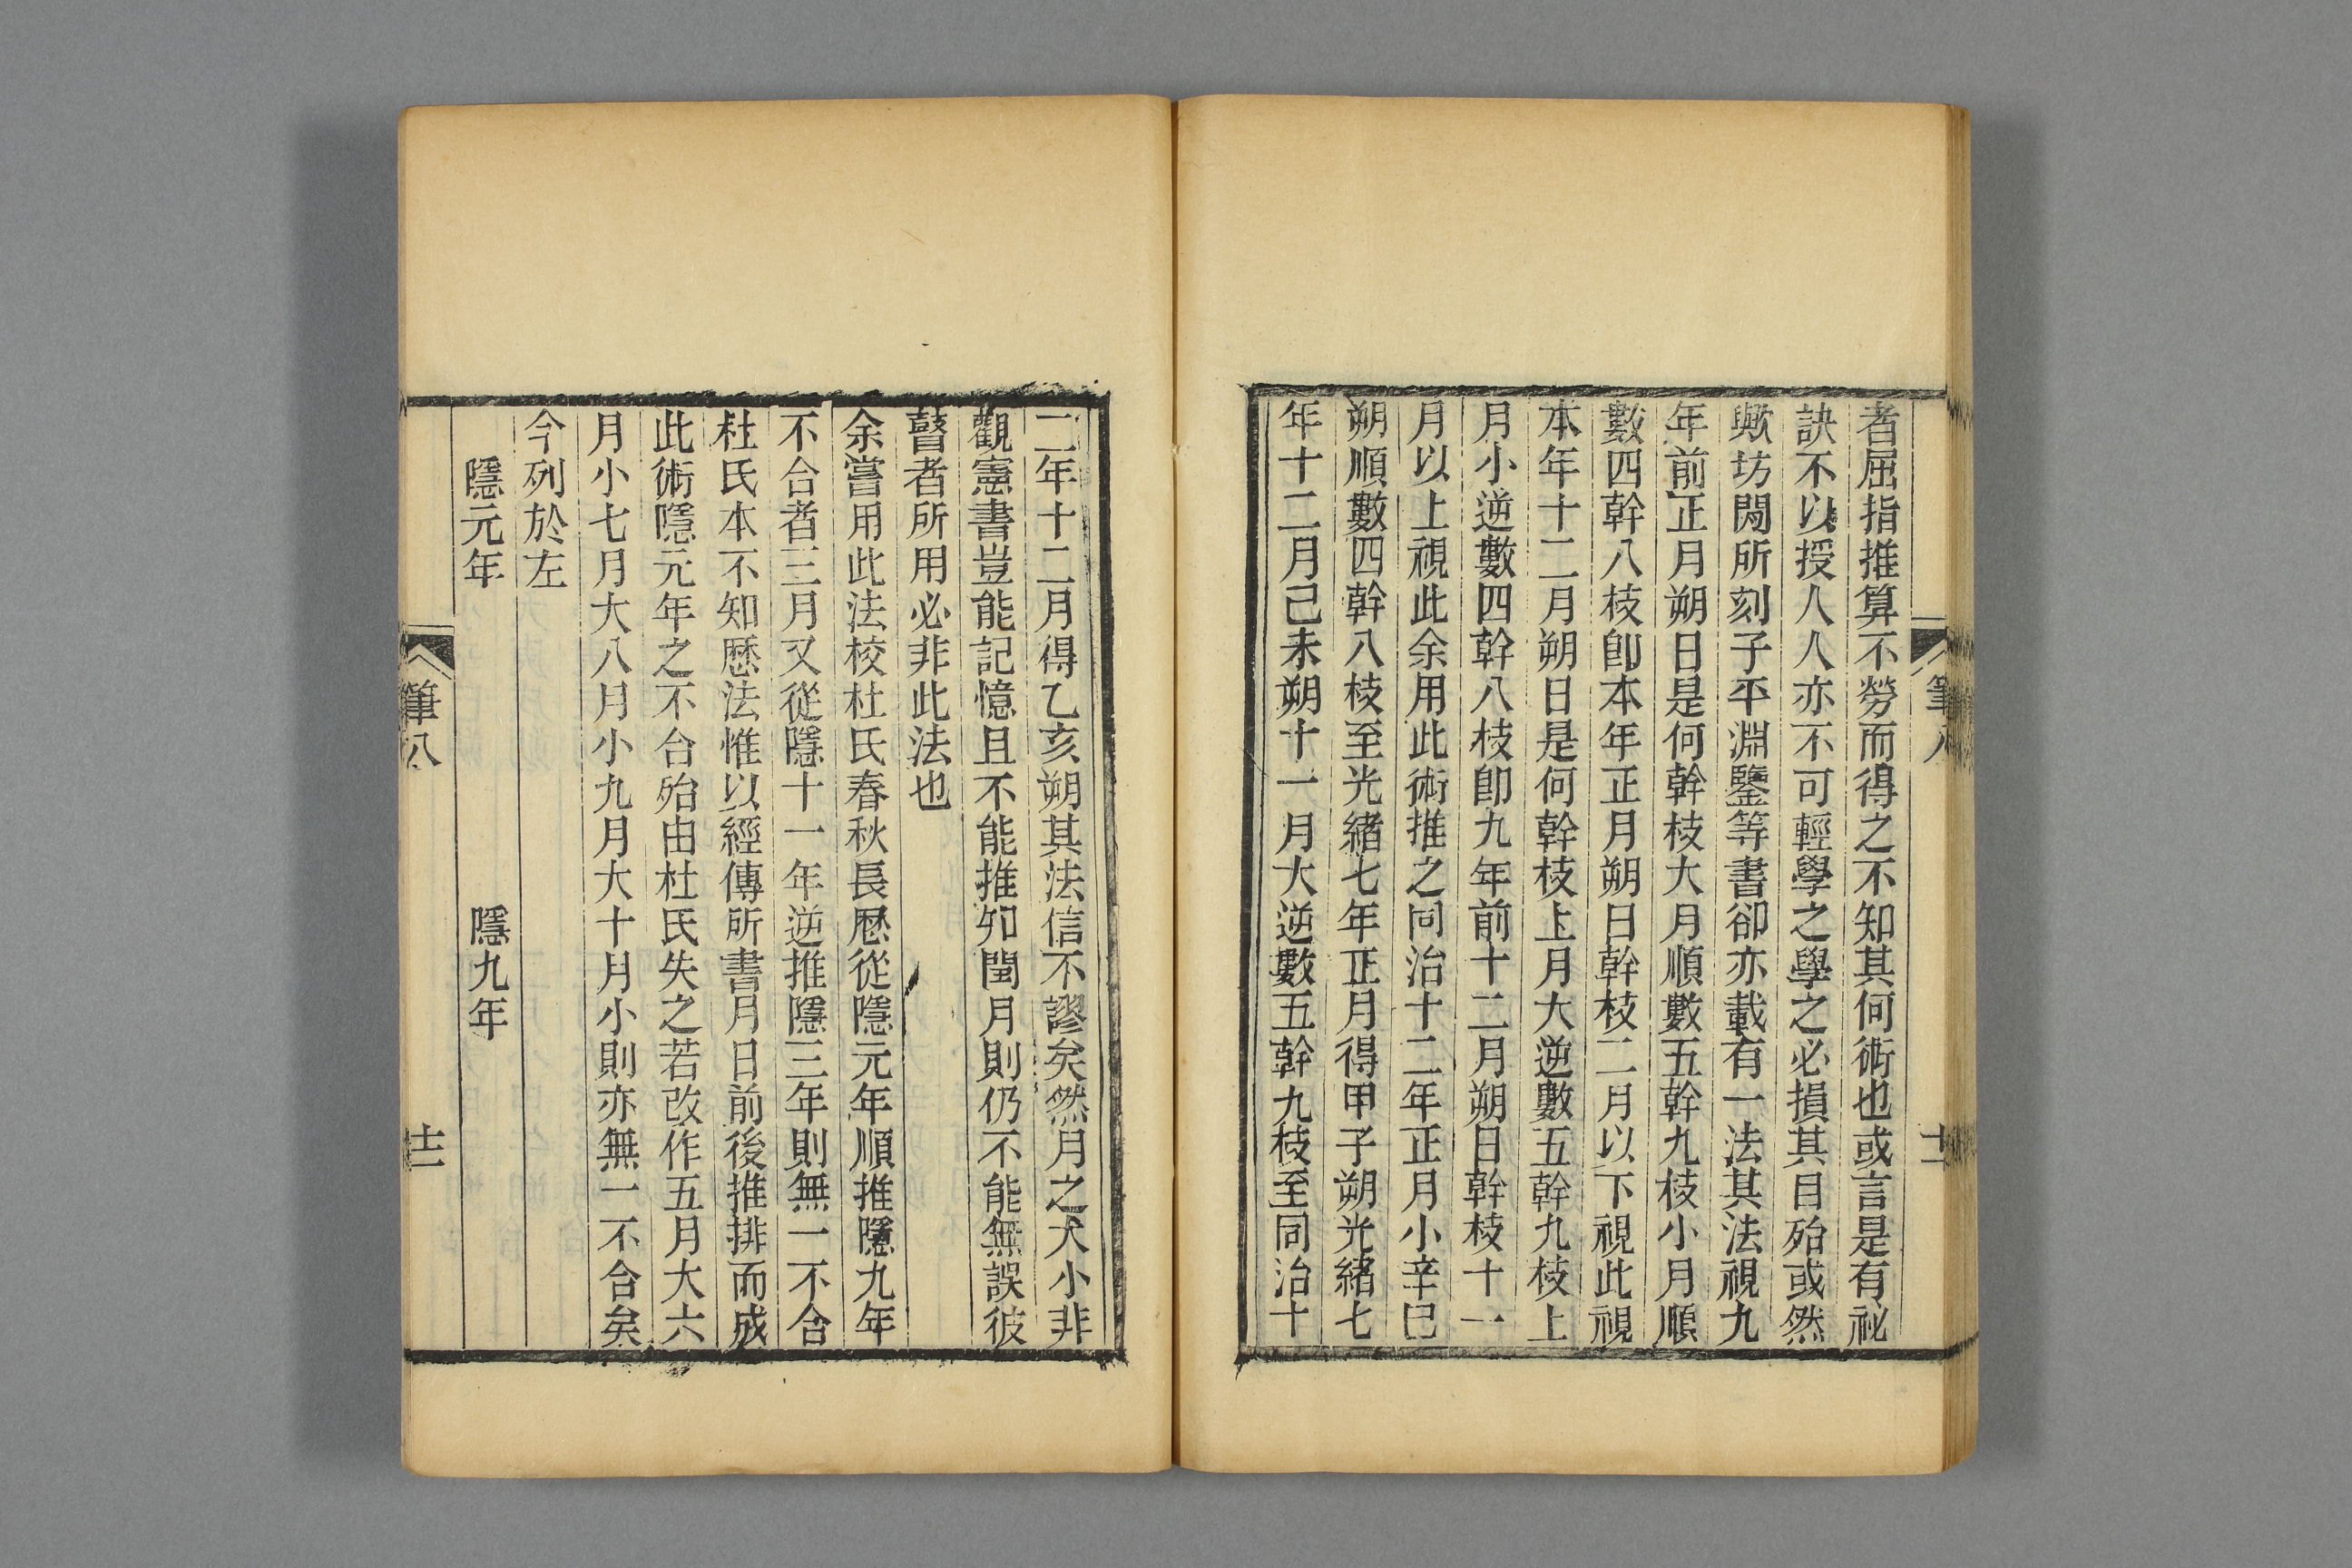 者屈指推算不勞而得之不知其何術也或言是有祕
訣不以授人人亦不可輕學之學之必損其目殆或然
歟坊閒所刻子平淵鑒等書卻亦載有一法其法視九
年前正月朔日是何幹枝大月順數五幹九枝小月順
數四幹八枝卽本年正月朔日幹枝二月以下視此視
本年十二月朔日是何幹枝上月大逆數五幹九枝上
月小逆數四幹八枝卽九年前十二月朔日幹枝十一
月以上視此余用此術推之同治十二年正月小辛巳
朔順數四幹八枝至光緒七年正月得甲子朔光緒七
年十二月己未朔十一月大逆數五幹九枝至同治十
筆八
十一
二年十二月得乙亥朔其法信不謬矣然月之大小非
觀憲書豈能記憶且不能推知閏月則仍不能無誤彼
瞽者所用必非此法也
余嘗用此法校杜氏春秋長厯從隱元年順推隱九年
不合者三月又從隱十一年逆推隱三年則無一不合
杜氏本不知厯法惟以經傳所書月日前後推排而成
此術隱元年之不合殆由杜氏失之若改作五月大六
月小七月大八月小九月大十月小則亦無一不合矣
今列於左
隱元年　隱九年
筆八
十二